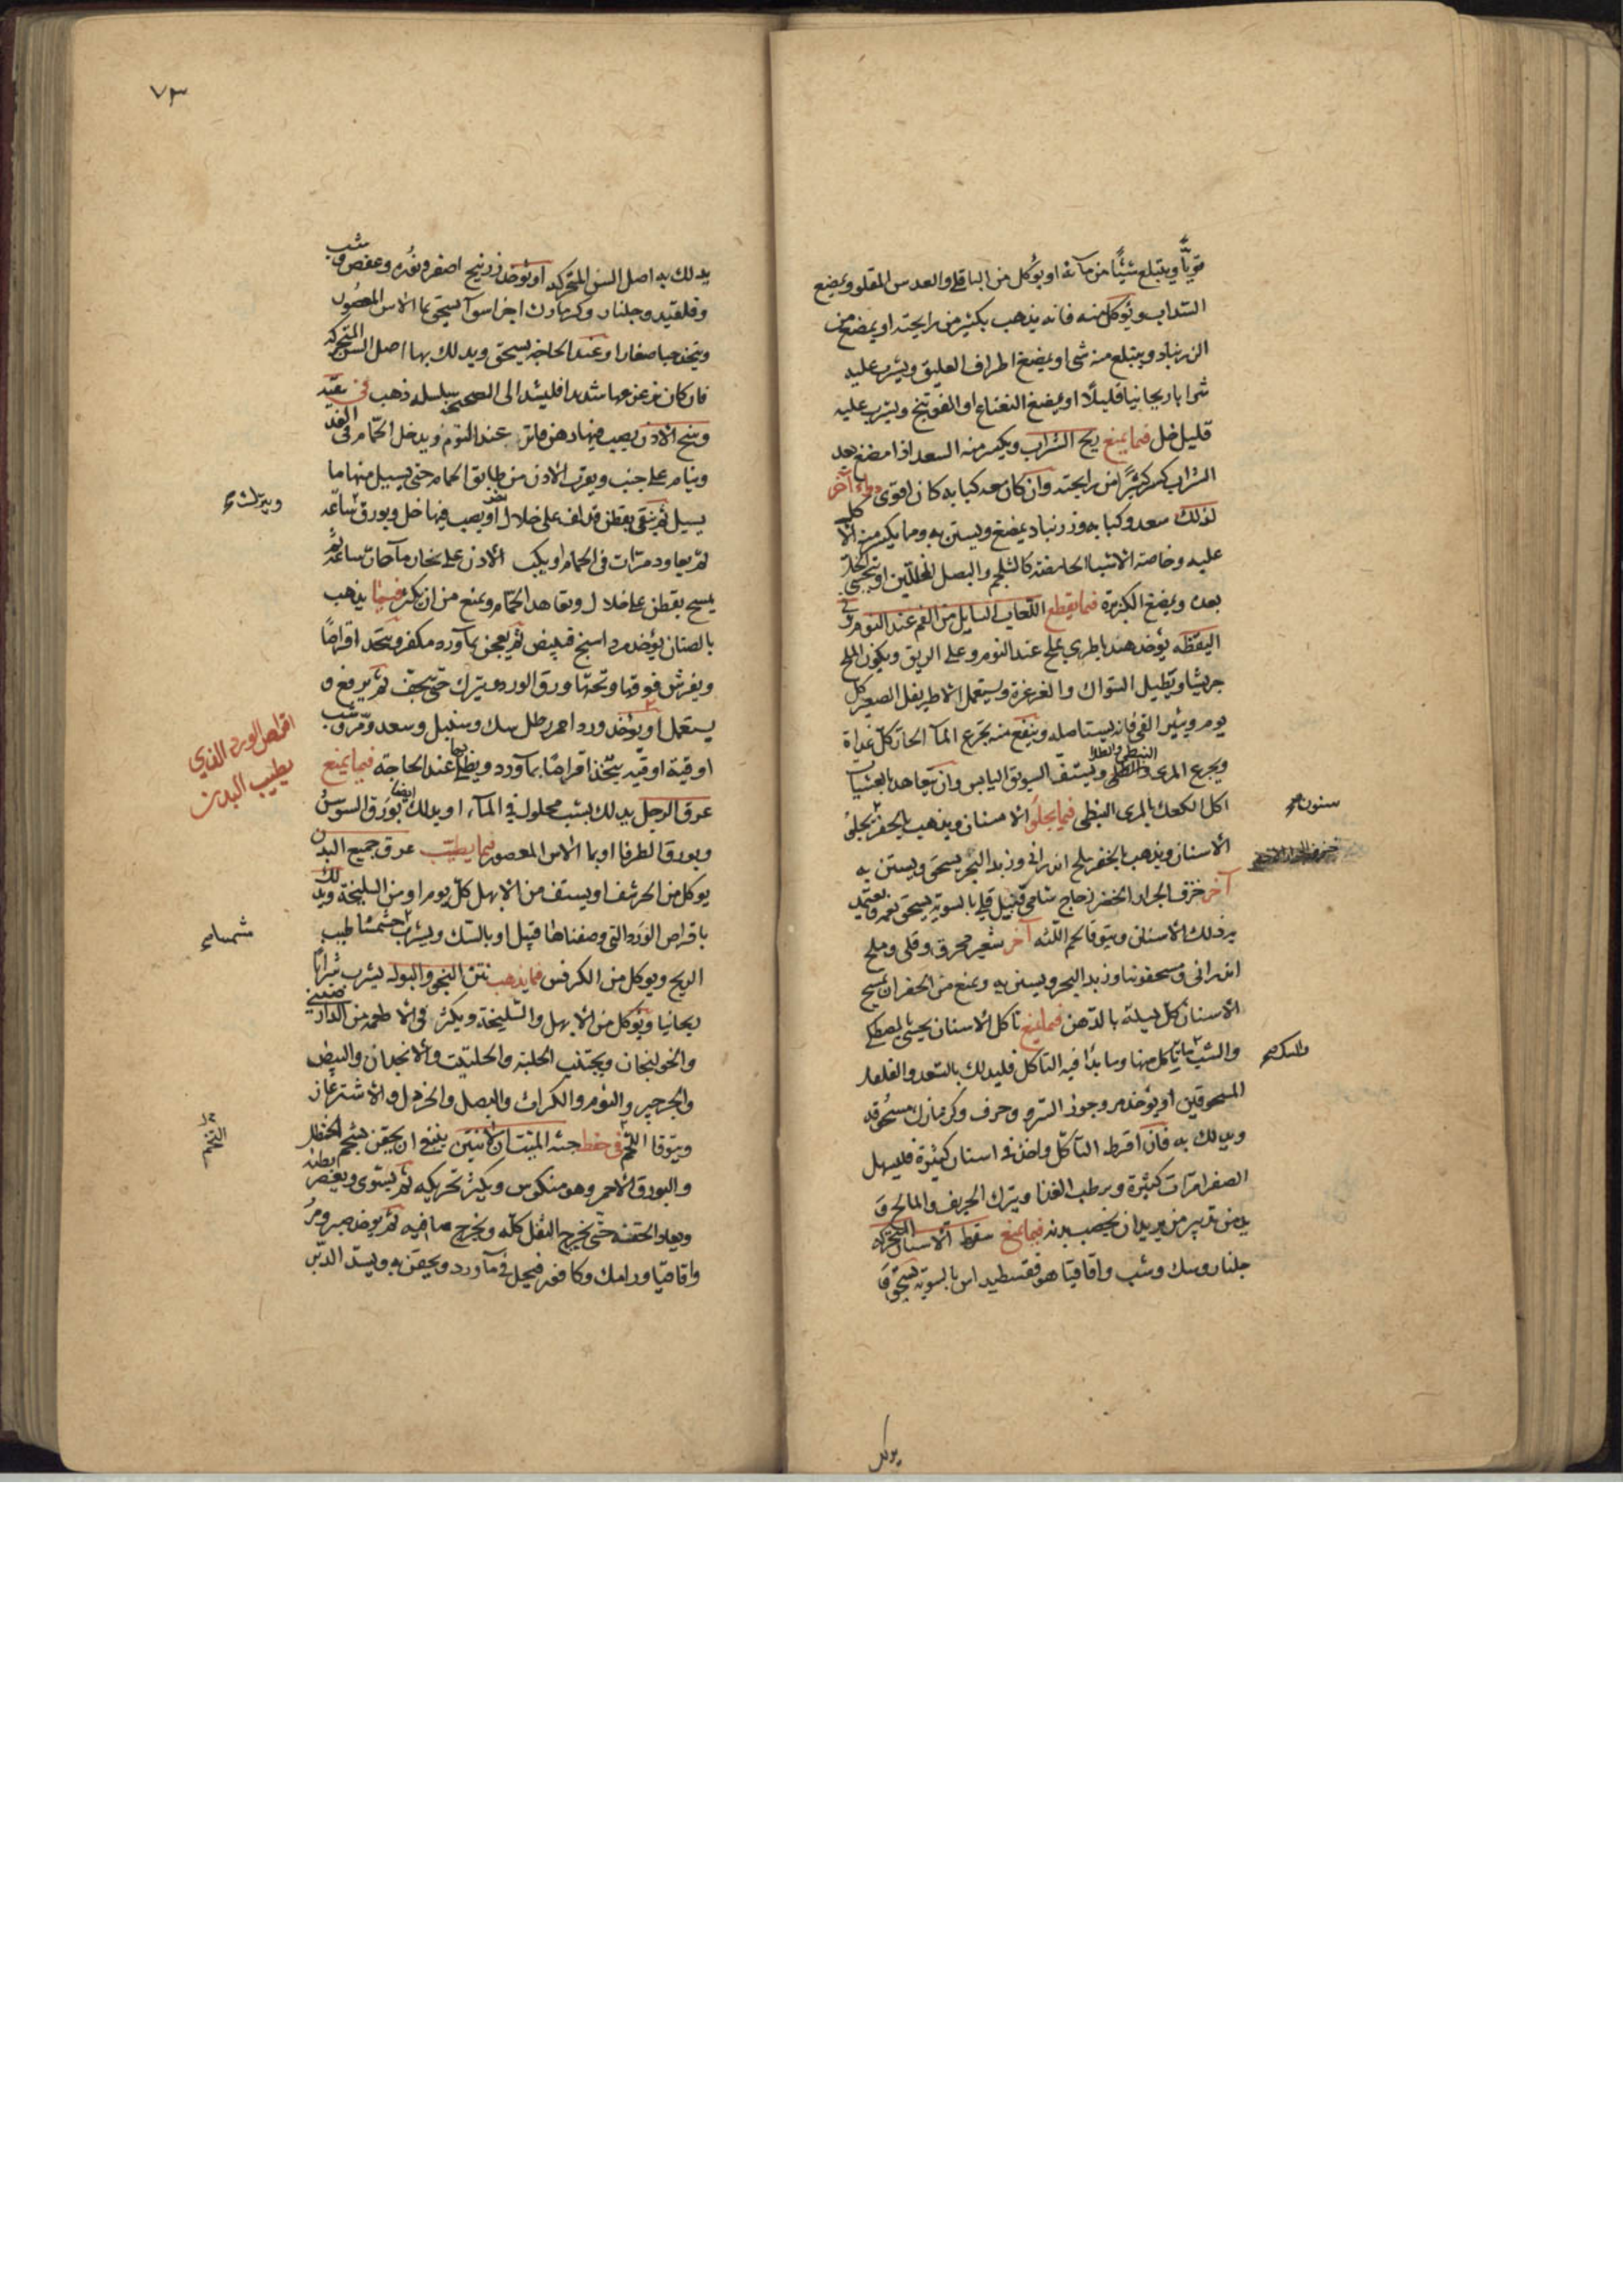 قويًّا ويبتلع شيئًا من مآئه او يؤكل من الباقلى والعدس المقلو ويمضغ
السداب ويؤكل منه فانه يذهب بكثير من رايحته او يمضغ من
الزرنباد ويبتلع منه شى او يمضغ اطراف العليق ويشرب عليه
شرابا ريحانيا قليلًا او يمضغ النعناع او الفوتنج ويشرب عليه
قليل خل فيما يمنع ريح الشراب ويكسر منه السعد اذا مضغ بعد
الشراب كسر كثيرًا من رايحته وان كان معه كبابه كان اقوى دواء آخر
لذلك سعد وكبابه وزرنباد يمضغ ويستن به ومما يكسر منه الاكل
عليه وخاصة الاشيا الحامضه كالشلجم والبصل المخللين او يتحسى الخل
بعده ويمضغ الكزبرة فيما يقطع اللعاب السايل من الفم عند النوم وفى
اليقظه يؤخذ هندبا طرى بملح عند النوم وعلى الريق ويكون الملح
جريشا ويطيل السواك والغرغرة ويستعمل الاطريفل الصغير كل
يوم ويثير القى فانه يستاصله وينفع منه تجرع المآ الحار كل غداة
ويجرع المرى النبطى ويستف السويق اليابس وان يتعاهد بالعشيات
اكل الكعك بالمرى النبطى فيما يجلو الاسنان ويذهب بالحفر يجلو
الاسنان ويذهب بالحفر ملح اندرانى وزبد البحر يسحق ويستن به
آخر خزف الجرار الخضر زجاج شامى قنبيل قلى بالسوية يسحق نعمه ويعتمد
به ذلك الاسنان ويتوقا لحم اللثه آخر شعير محرق وقلى وملح
اندرانى مسحقوتنا وزبد البحر ويستن به ويمنع من الحفر ان يمسح
الاسنان كل ليلة بالدهن فيما يمنع تاكل الاسنان يحشى بالمصطكى
والشب ما تاكل منها وما بدأ فيه التاكل فليدلك بالسعد والفلفل
المسحوقين او يؤخذ مر وجوز السرو وحرف وكزمازك مسحوقه
ويدلك به فان افرط التاكل واخذ فى اسنان كثيرة فليسهل
الصفرا مرّات كثيرة ويرطب الغذا ويترك الحريف والمالح و
يدمن تدبير من يريد ان يخصب بدنه فيما يمنع سقوط الاسنان المتحركه
جلنار وسك وشب واقاقيا هوفقسطيداس بالسوية يسحق و
سنون
يوكل
٧٣
يدلك به اصل السن المتحركه او يؤخذ زرنيخ اصفر ونوره وعفص وشب
وقلقنيد وجلنار وكزمازك اجزا سوآ يسحق بما الاس المعصور
ويتخذ حبا صغارا وعند الحاجه يسحق ويدلك بها اصل السن المتحركه
فان كان تزعزعها شديدا فليشد الى الصحيح بسلسله ذهب فى تنقيه
وسخ الاذن يصب فيها دهن فاتر عند النوم ويدخل الحمّام فى الغد
وينام على جنب ويوتر الاذن من طابق الحمام حتى يسيل منها ما
يسيل ثم ينقى بقطن قد لف على خلال او يصب فيها خل وبورق ساعه
ثم يعاود مرّات فى الحمام او يكب الاذن على بخار مآ حار ساعه ثم
يمسح بقطن على خلال وتعاهد الحمّام ويمنع من ان يكثر فيما يذهب
بالصنان يؤخذ مرداسنج فيبيض ثم يعجن بمآورد مكفر ويتخذ اقراصًا
ويفرش فوقها وتحتها ورق الورد ويترك حتى يجف ثم يرفع و
يستعمل او يؤخذ ورد احمر رطل سك وسنبل وسعد ومر وشب
اوقية اوقيه يتخذ اقراصًا بمآورد ويطلى بها عند الحاجه فيما يمنع
عرق الرجل يدلك بشب محلول فى المآء او يدلك ايضا بورق السوس
وبورق الطرفا او بما الاس المعصور فيما يطيب عرق جميع البدن
يوكل من الحرشف او يستف من الابهل كل يوم او من السليخة ويدلك
باقراص الورد التى وصفناها قبل او بالسك ويشرب مشمشا طيب
الريح ويوكل من الكرفس فيما يذهب نتن النجو والبول يشرب شرابًا
ريحانيا ويؤكل من الابهل والسليخة ويكثر فى الاطعمه من الدارصينى
والخولنجان ويجتنب الحلبة والحلتيت والانجدان والبيض
والجرجير والثوم والكراث والبصل والخردل والاشترغاز
ويتوقا التخم فى حفظ جثه الميت ان لا تنتن ينبغى ان يحقن بشحم الحنظل
والبورق الاحمر وهو منكوس ويكثر تحريكه ثم يستوى ويعصر بطنه
ويعاد الحقنه حتى يخرج الثفل كله ويخرج صافيه ثم يوخذ صبر ومر
واقاقيا ورامك وكافور فيحل فى مآورد ويحقن به ويسد الدبر
اقراص الورد الذى
يطيب البدن
التخم